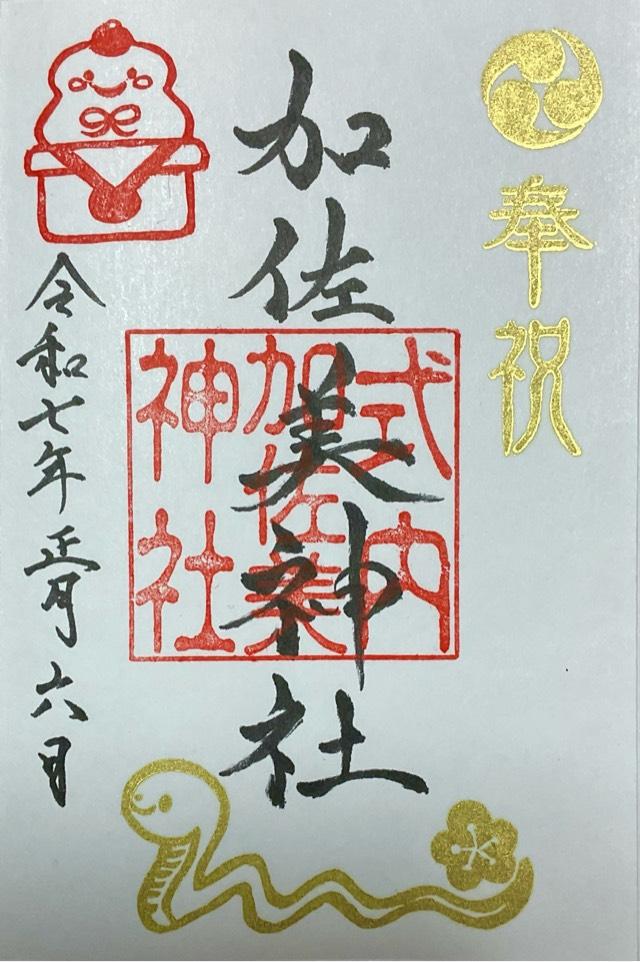 奉祝
加佐美神社
式内
加佐美
神社
令和七年正月六日